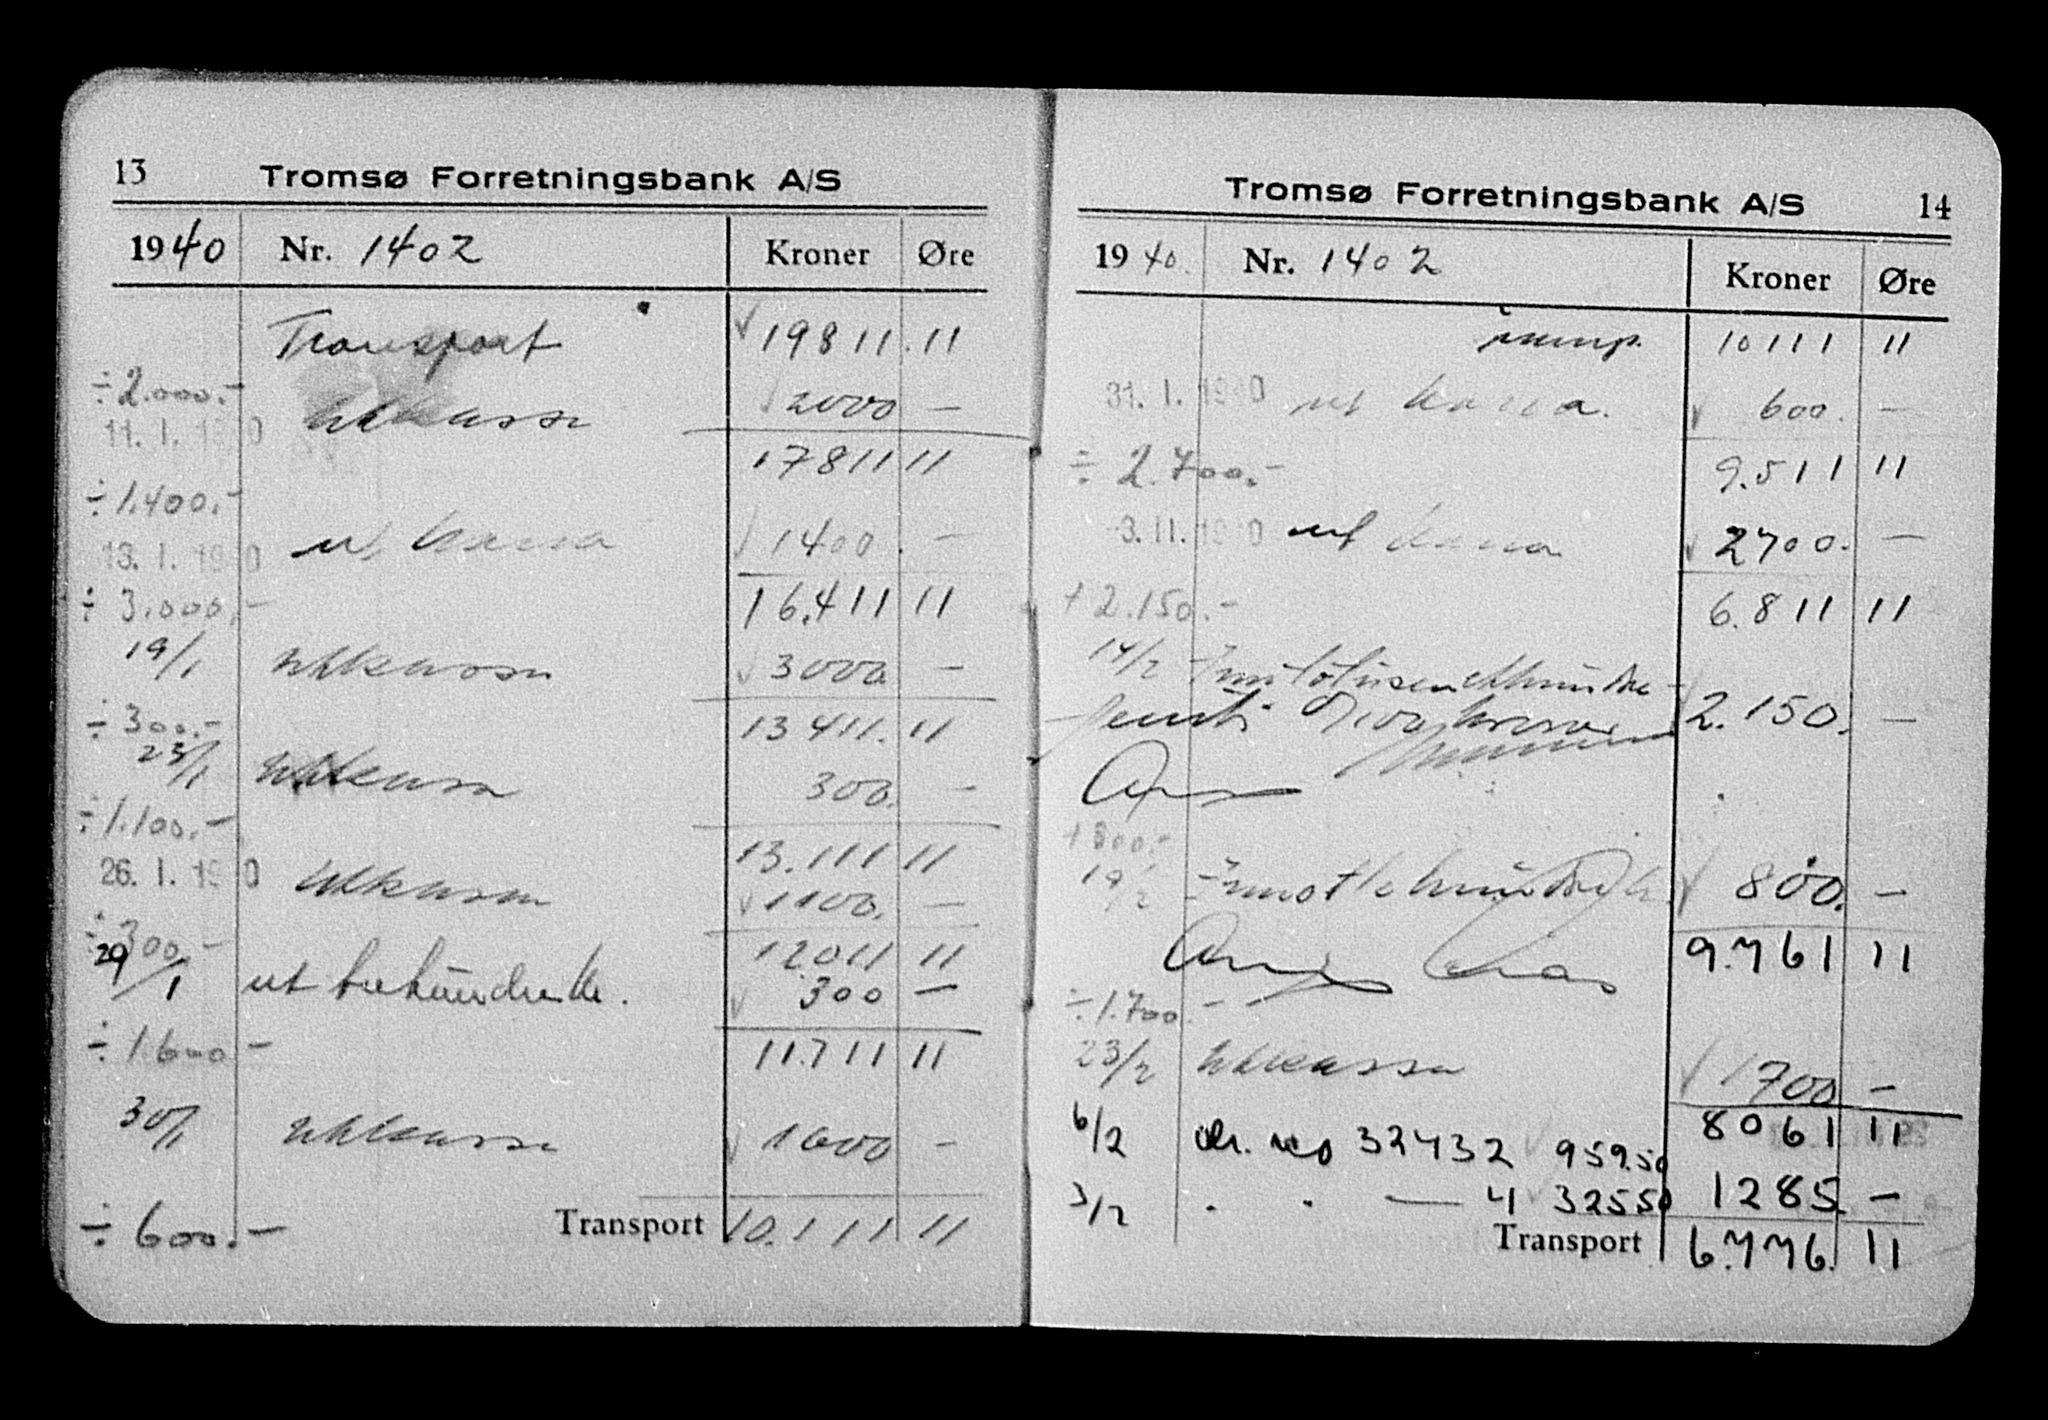 13 Tromsø Forretningsbank A/S
1940 Nr. 1402 Kroner Øre
Transport 19811.11
÷ 2.000.-
11. I. 1940 Utkassa 2000 —
17811 11
÷ 1.400.-
13. I. 1940 ut kassa 1400. —
16.411 11
÷ 3.000.-
19/1 Utkassa 3000 —
13411. 11
÷ 300.-
23/1 Utkassa 300. —
÷ 1.100.-
13.111 11
26. I. 1940 Utkassa 1100. —
÷ 300.-
12011 11
29/1 ut trehundre kr. 300 —
÷ 1.600.-
11.711 11
30/1 Utkassa 1600 —
÷ 600.- Transport 10.111 11
Tromsø Forretningsbank A/S 14
1940. Nr. 1402 Kroner Øre
10111 11
31. I. 1940 ut kassa. 600. —
÷ 2.700.-
9.511 11
3. II. 1940 ut kassa 2700. —
+ 2.150.-
6.811 11
14/2 Inn totusenetthundre
2.150. —
+ 800.-
19/2 Inn otte hundre kr. 800. —
9.761 11
÷ 1.700.-
23/2 Utkassa 1700 —
8061 11
6/2 32432 959.50
3/2 . . — 4 325 50 1285. —
Transport 6.776. 11